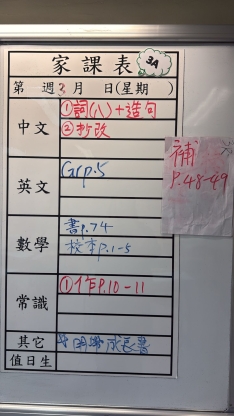 家課表
3A
第 週 3月 日(星期 )
中文
①詞(八)+造句
②抄改
英文
Grp.5
數學
書P.74
校本P.1-5
補
P.48-49
常識
①作P.10-11
其它
成長書
值日生